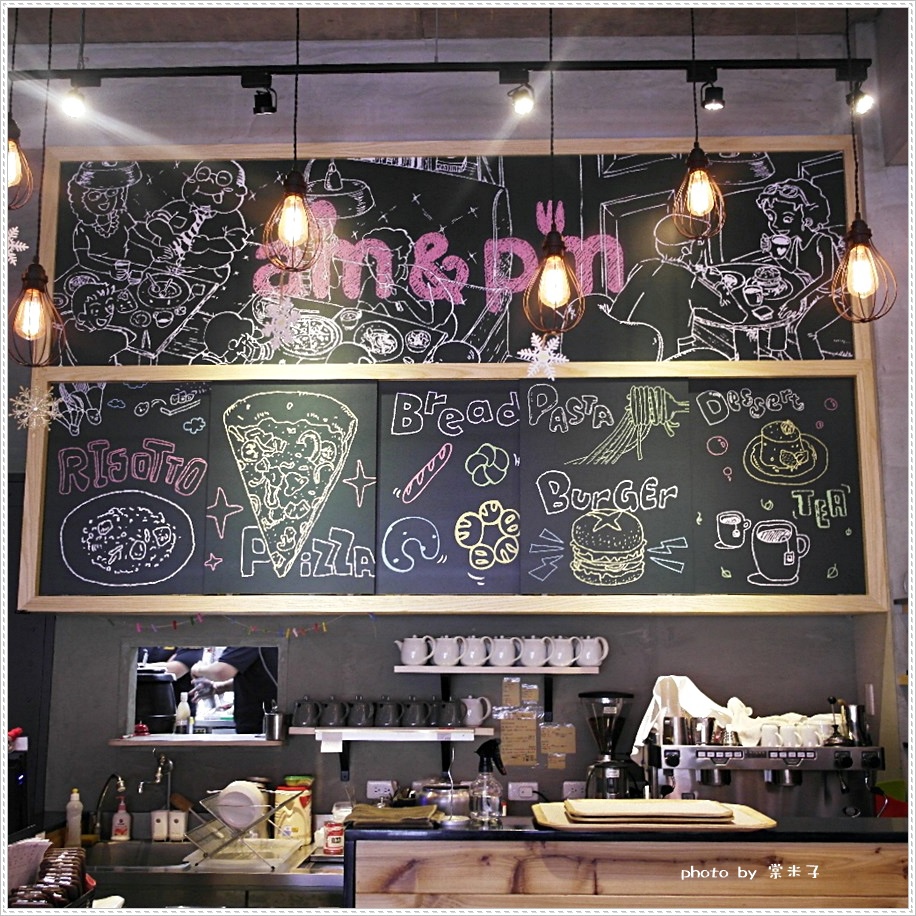 aln & pln
RISOTTO
PIZZA
Bread
PASTA
BURGER
Dessert
TEA
photo by 棠米子